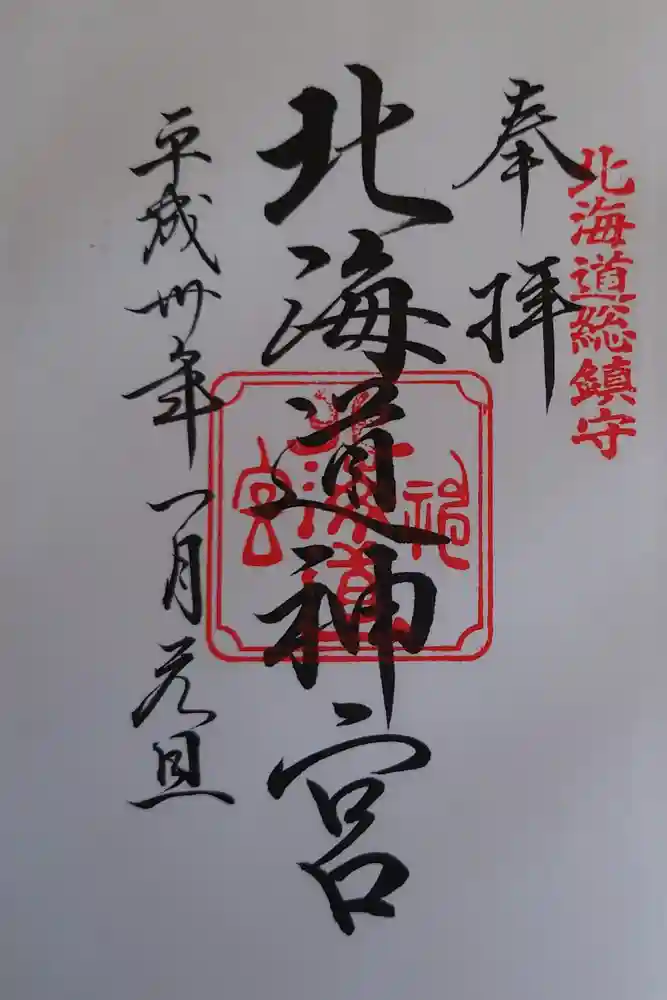 北海道総鎮守
奉拝
北海道神宮
平成卅年一月元旦